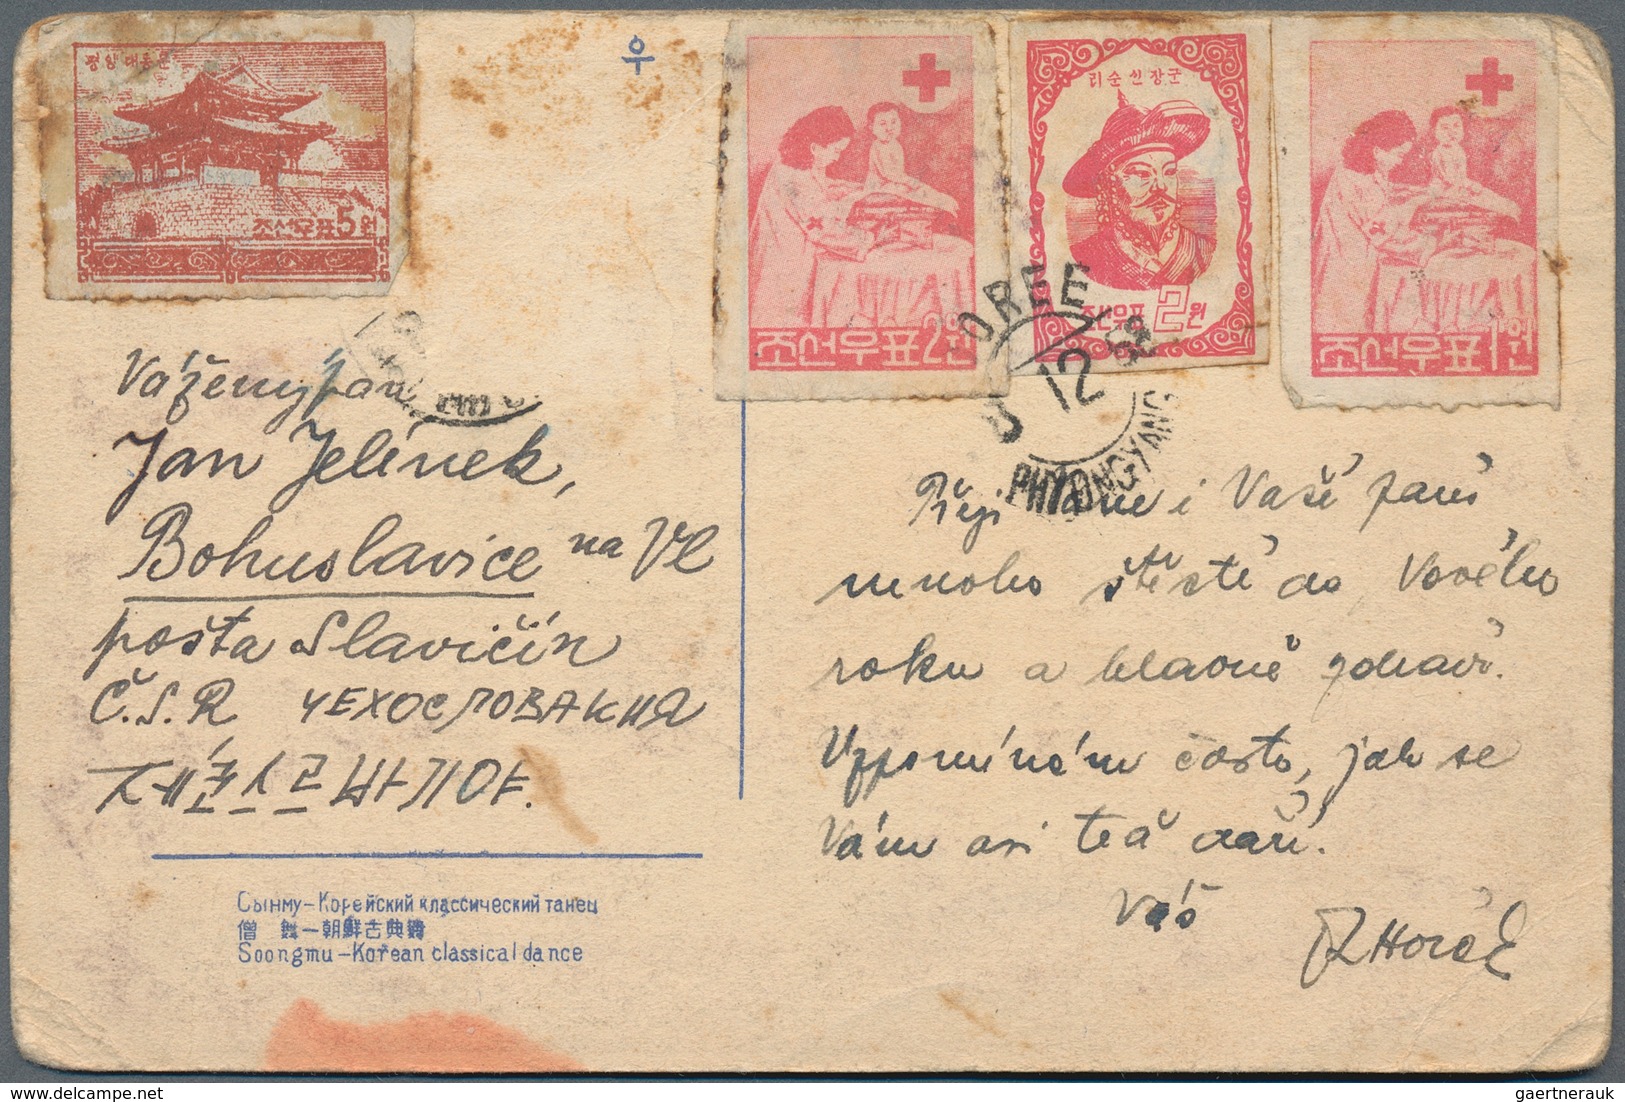 평양대동문
조선우표5원
우
조선우표2원
리순신장군
조선우표 2원
조선우표1원
COREE
12 58
PHYONGYANG
Vážený pan
Jan Jelínek,
Bohuslavice na Vl
pošta Slavičín
Č.S.R ЧЕХОСЛОВАКИЯ
체코스로바키야.
Přeji Vám i Vaší paní
mnoho štěstí do Nového
roku a hlavně zdraví.
Vzpomínám často, jak se
Vám asi teď daří.
Váš
Horák
Сынму-Корейский классический танец
僧舞-朝鮮古典舞
Soongmu-Korean classical dance
gaertnerauk / delcampe.net